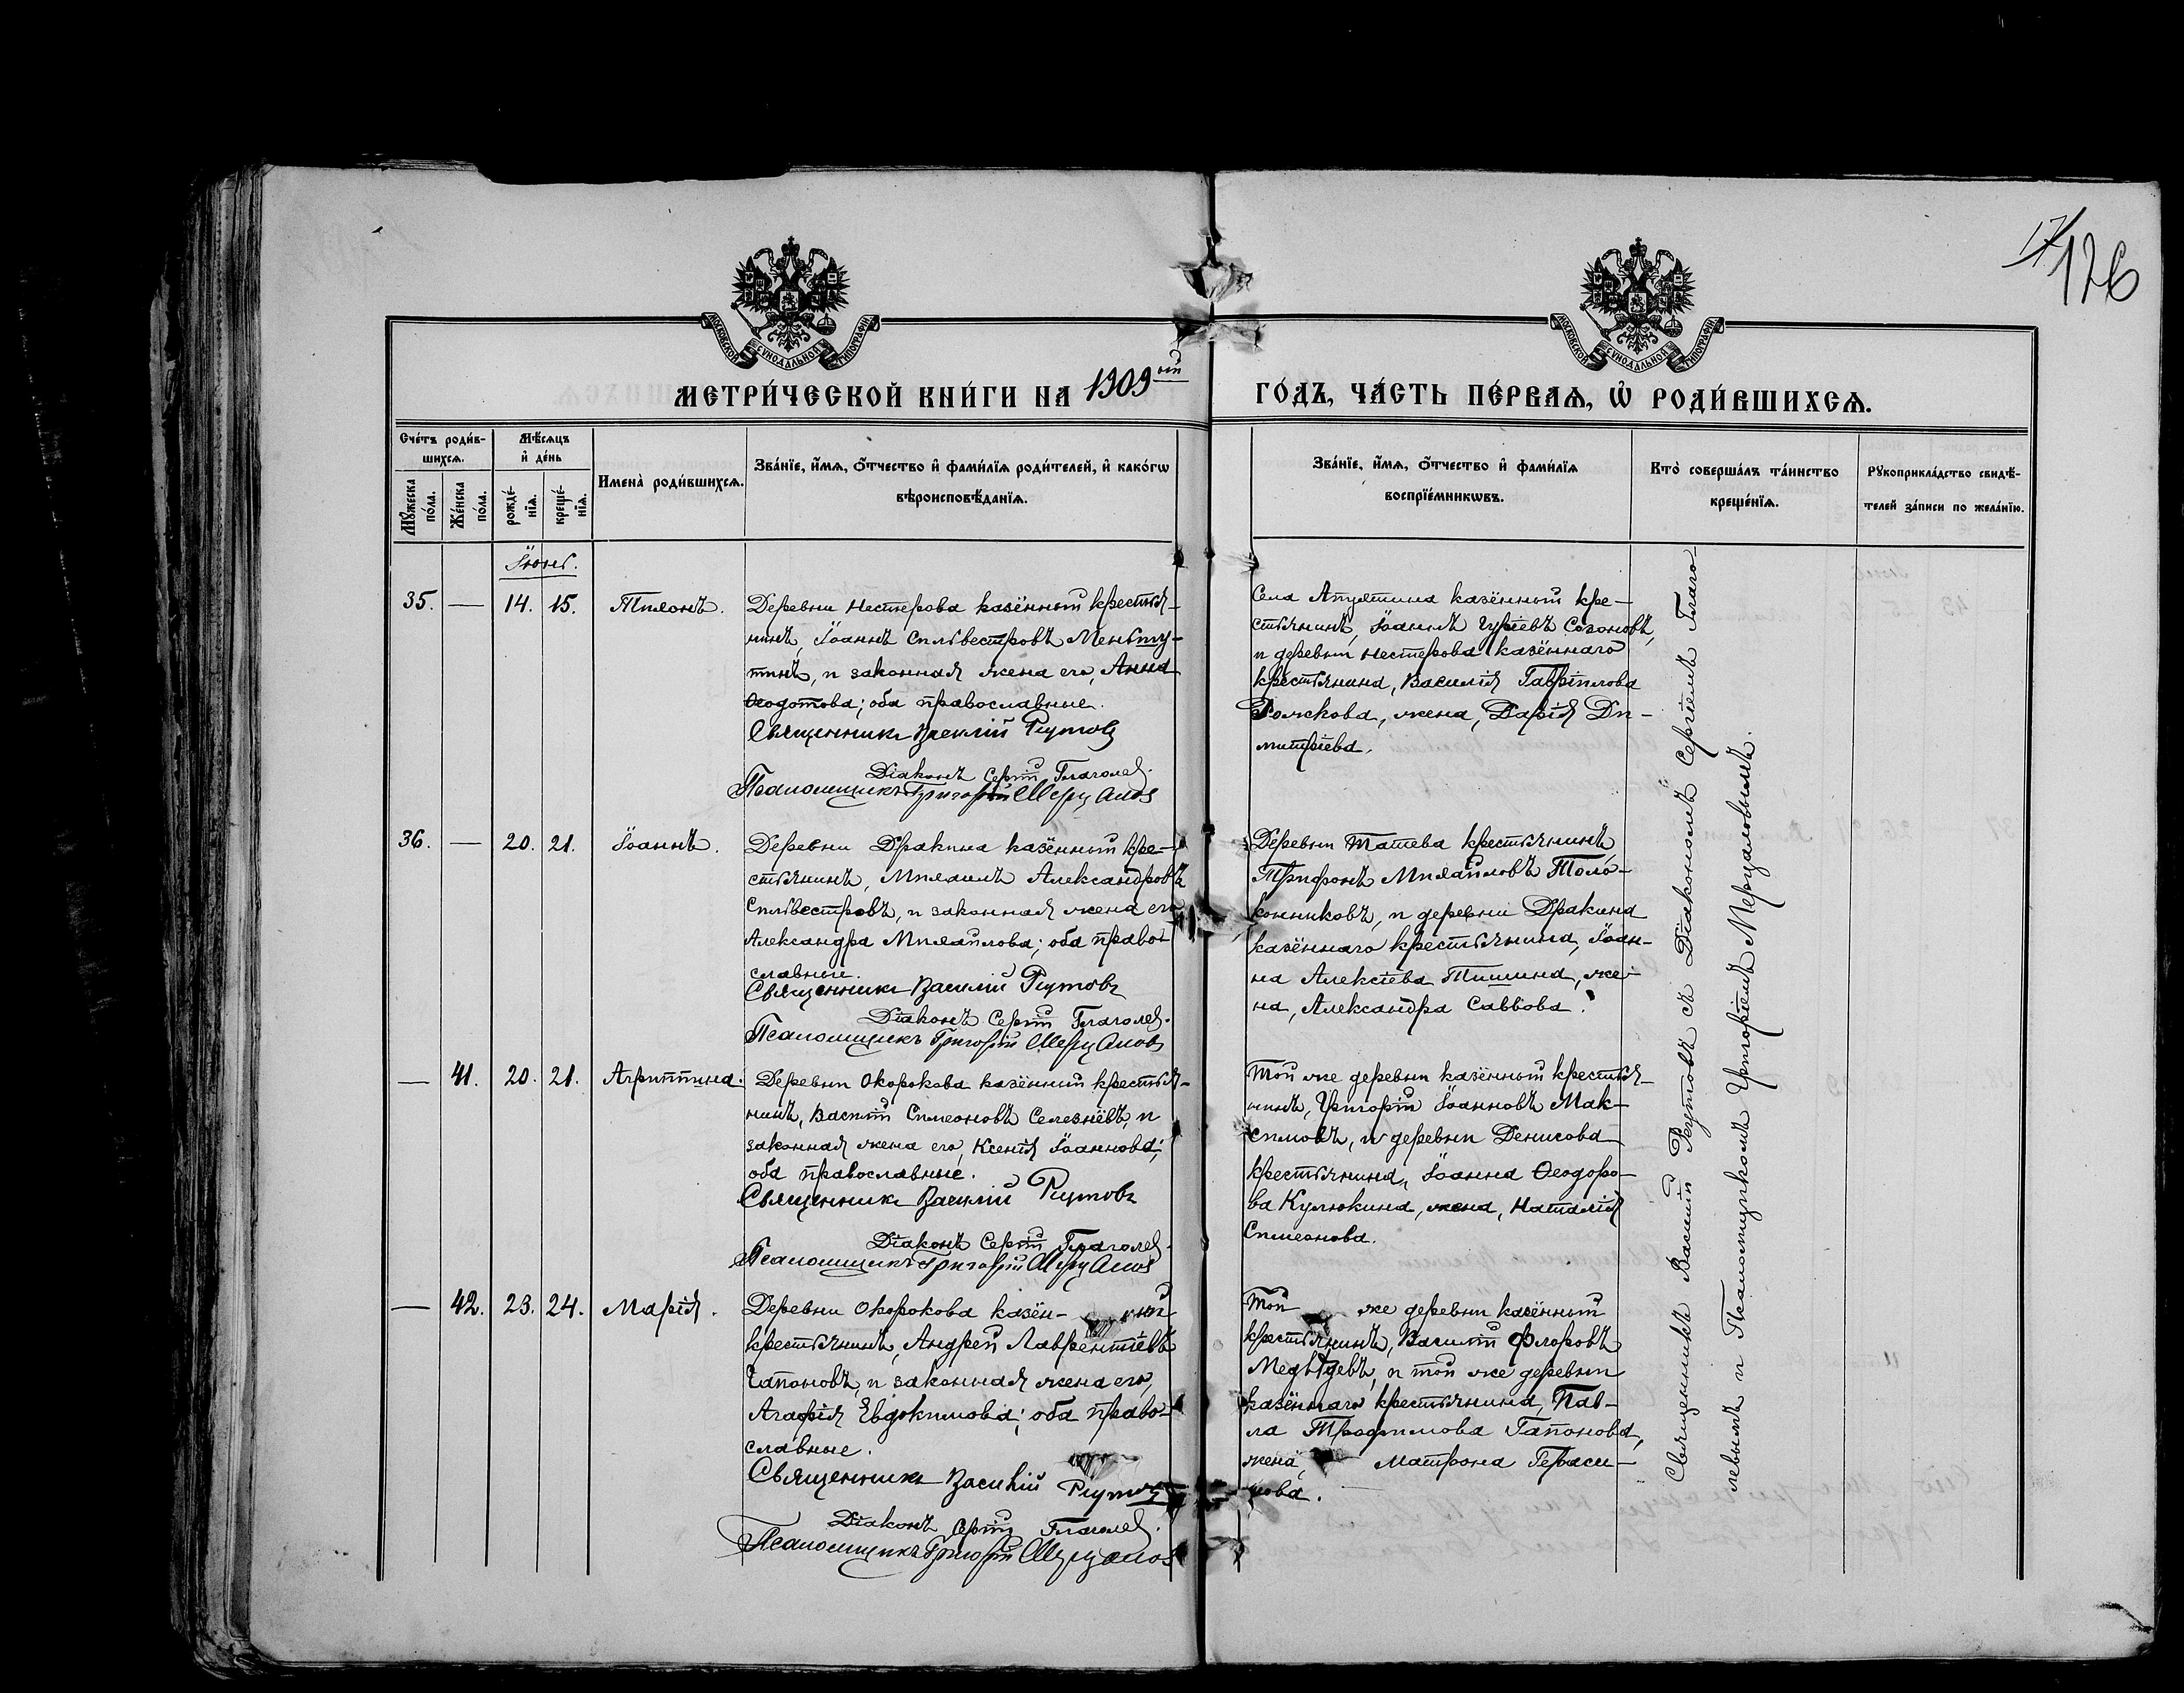 17
126
МОСКОВСКОЙ СѴНОДАЛЬНОЙ ТИПОГРАФІИ
МОСКОВСКОЙ СѴНОДАЛЬНОЙ ТИПОГРАФІИ
МЕТРИ́ЧЕСКОЙ КНИ́ГИ НА 1909ый ГО́ДЪ, ЧА́СТЬ ПЕ́РВАѦ, Ѡ҆ РОДИ́ВШИХСѦ.
Сче́тъ роди́в-
шихсѧ.
Мѣ́сѧцъ
и҆ де́нь
Мꙋ́жеска по́ла.
Же́нска по́ла.
рожде́-
нїѧ.
креще́-
нїѧ.
Имена̀ роди́вшихсѧ.
Зва́нїе, и҆́мѧ, ѻ҆́тчество и҆ фами́лїѧ роди́телей, и҆ како́гѡ
вѣроисповѣ́данїѧ.
Зва́нїе, и҆́мѧ, ѻ҆́тчество и҆ фами́лїѧ
воспрїе́мникѡвъ.
Кто̀ соверша́лъ та́инство
креще́нїѧ.
Рꙋкоприкла́дство свидѣ́-
телей за́писи по жела́нїю.
Іюнь.
35. — 14. 15. Тихонъ.
Деревни Нестерова казённый крестья-
нинъ, Іоаннъ Сильвестровъ Меньшу-
тинъ, и законная жена его, Анна
Ѳеодотова; оба православные.
Священникъ Василій Реутовъ
Діаконъ Сергій Глаголев.
Псаломщикъ Григорій Мерцалов
Села Атуятина казённый кре-
стьянинъ, Іоаннъ Гуріевъ Созоновъ,
и деревни Нестерова казённаго
крестьянина, Василія Гавріилова
Рожкова, жена, Дарія Ди-
митріева.
36. — 20. 21. Іоаннъ.
Деревни Дракина казённый кре-
стьянинъ, Михаилъ Александровъ
Сильвестровъ, и законная жена его
Александра Михайлова; оба право-
славные.
Священникъ Василій Реутовъ
Діаконъ Сергій Глаголев.
Псаломщикъ Григорій Мерцаловъ
Деревни Татева крестьянинъ
Трифонъ Михайловъ Толо-
конниковъ, и деревни Дракина
казённаго крестьянина, Іоан-
на Алексіева Тишина, же-
на, Александра Саввова.
— 41. 20. 21. Агриппина.
Деревни Окорокова казённый крестья-
нинъ, Василій Симеоновъ Селезнёвъ, и
законная жена его, Ксенія Іоаннова;
оба православные.
Священникъ Василій Реутовъ
Діаконъ Сергій Глаголев.
Псаломщикъ Григорій Мерцалов
Той же деревни казённый крестья-
нинъ, Григорій Іоанновъ Мак-
симовъ, и деревни Денисова
крестьянина, Іоанна Ѳеодоро-
ва Кулюкина, жена, Наталія
Симеонова.
— 42. 23. 24. Марія.
Деревни Окорокова казён- ный
крестьянинъ, Андрей Лаврентіевъ
Гапоновъ, и законная жена его,
Агафія Евдокимова; оба право-
славные.
Священникъ Василій Реутовъ
Діаконъ Сергій Глаголев.
Псаломщикъ Григорій Мерцалов
Той же деревни казённый
крестьянинъ, Василій Флоровъ
Медвѣдевъ, и той же деревни
казённаго крестьянина, Пав-
ла Трофимова Гапонова,
жена, Матрона Гераси-
мова.
Священникъ Василій Реутовъ съ Діакономъ Сергіемъ Глаго-
левымъ и Псаломщикомъ Григоріемъ Мерцаловымъ.